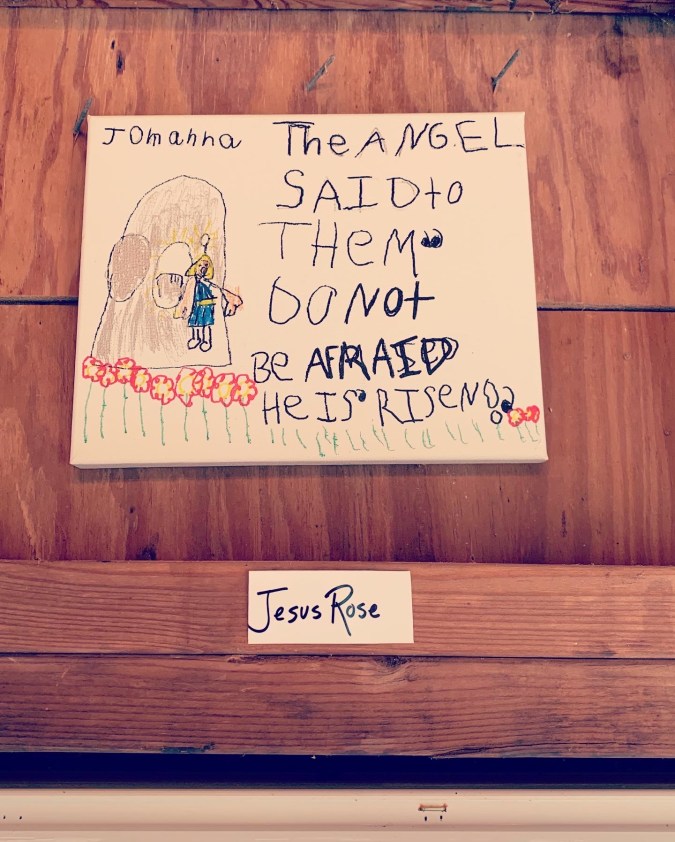 JOmahha
The ANGEL
SAID to
THEM.
DO NOt
Be AFRAIED
He IS RISEN!
Jesus Rose